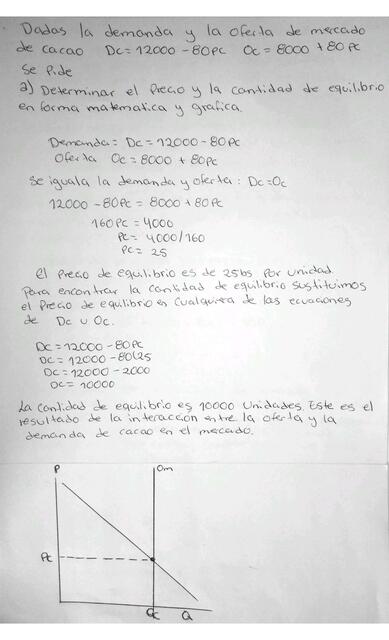 Dadas la demanda y la oferta de mercado
de cacao Dc=12000-80Pc Oc=8000+80Pc
Se Pide
a) Determinar el Precio y la cantidad de equilibrio
en forma matematica y grafica.
Demanda= Dc=12000-80Pc
Oferta Oc=8000+80Pc
Se iguala la demanda y oferta: Dc=Oc
12000-80Pc=8000+80Pc
160Pc=4000
Pc=4000/160
Pc=25
El Precio de equilibrio es de 25bs Por unidad.
Para encontrar la cantidad de equilibrio sustituimos
el Precio de equilibrio en cualquiera de las ecuaciones
de Dc u Oc.
Dc=12000-80Pc
Dc=12000-80(25
Dc=12000-2000
Dc=10000
La cantidad de equilibrio es 10000 Unidades. Este es el
resultado de la interacción entre la oferta y la
demanda de cacao en el mercado.
P Om
Pc
Qc Q